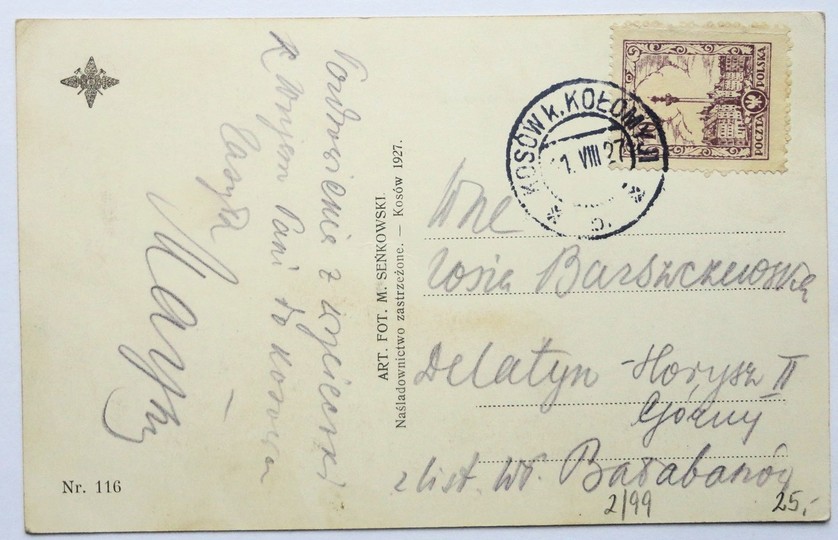 Pozdrowienia z wycieczki
z Wujem Pani do Kosowa
zasyła
Marys
Nr. 116
ART. FOT. M. SEŃKOWSKI.
Naśladownictwo zastrzeżone. — Kosów 1927.
POCZTA POLSKA
KOSÓW k. KOŁOMYI
1. VIII 27
c
Wne
Zosia Barszczewska
Delatyn - Horysz II
Górny
z list. Wp. Bałabanów
2/99
25,-